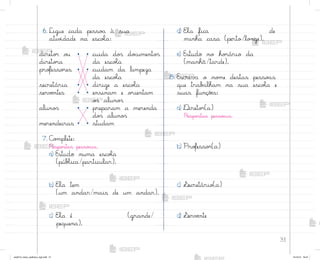 6. Ligue cada pessoa à sua
atividade na escola:
diretor ou
diretora
professores
secretária
serventes
alunos
merendeiras
cuida dos documentos
da escola
cuidam da limpeza
da escola
dirige a escola
ensinam e orientam
os alunos
preparam a merenda
dos alunos
estudam
7. Complete:
Respostas pessoais.
a) Estudo numa escola
(pública/particular).
b) Ela tem
(um andar/mais de um andar).
c) Ela é (grande/
pequena).
d) Ela fica de
minha casa (perto/longe).
e) Estudo no horário da
(manhã/tarde).
8. Escreva o nome destas pessoas
que trabalham na sua escola e
suas funções:
a) Diretor(a)
Respostas pessoais.
b) Professor(a)
c) Secretário(a)
d) Servente